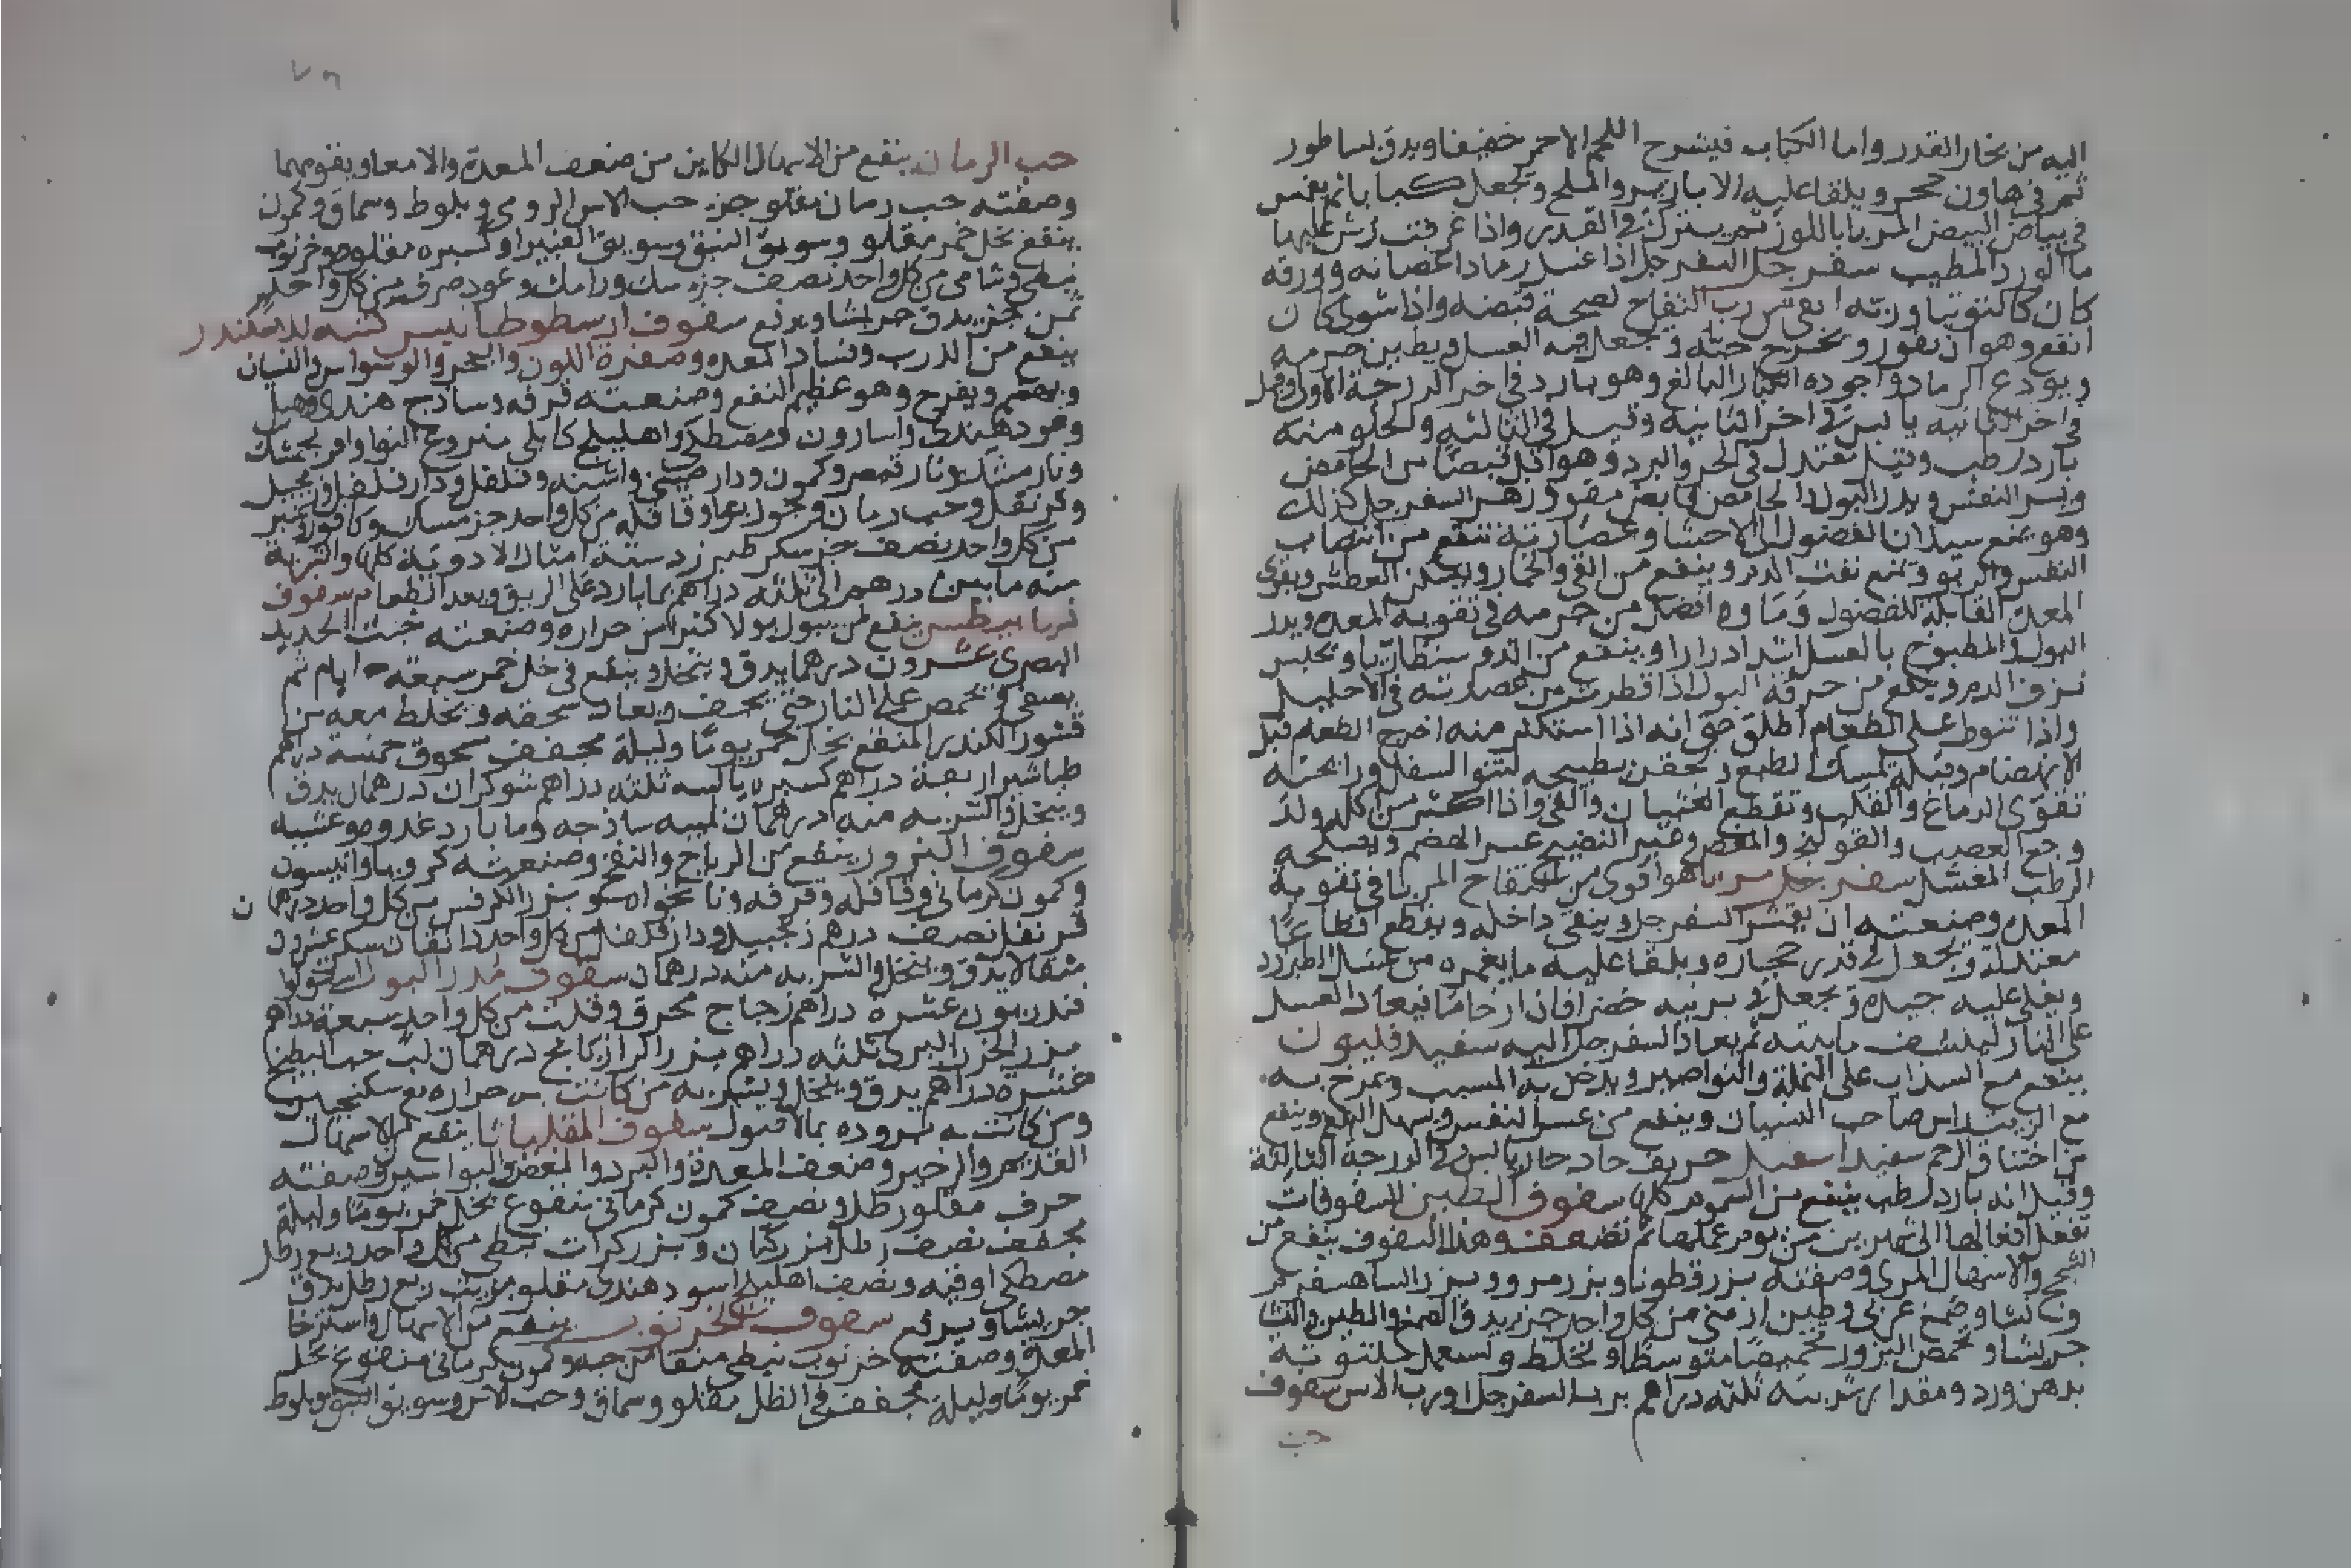 اليه من بخار القدر واما الكباب فيشرح اللحم الاحمر خفيفا ويدق بساطور
ثم في هاون حجر ويلقا عليه الابازير والملح ويجعل كبابا ثم يغمس
في بياض البيض المربا باللوز ثم يترك في القدر واذا غرفت رش عليها
ما الورد المطيب سفرجل السفرجل اذا غسل رماد اغصانه وورقه
كان كالتوتيا وربه ابقى من رب التفاح لصحة قبضه واذا شوى كان
انفع وهو ان يقور ويخرج حبه ويجعل فيه العسل ويطين جرمه
ويودع الرماد واجوده الكبار البالغ وهو بارد في اخر الدرجة الاولى وقيل
في اخر الثانيه يابس في اخر الثانيه وقيل في الثالثه والحلو منه
بارد رطب وقيل معتدل في الحر والبرد وهو اقل قبضا من الحامض
ويسر النفس ويدر البول والحامض قابض مقو وزهر السفرجل كذلك
وهو يمنع سيلان الفضول الى الاحشا وعصارته تنفع من انتصاب
النفس والربو ويمنع نفث الدم وينفع من القي والخمار ويسكن العطش ويقوى
المعدة القابلة للفضول وماوه افضل من جرمه في تقويه المعده ويدر
البول والمطبوخ بالعسل اشد ادرارا وينفع من الدوسنطاريا ويحبس
نزف الدم وينفع من حرقة البول اذا قطرت من عصارته في الاحليل
واذا تنوول على الطعام اطلق حتى انه اذا استكثر منه اخرج الطعام قبل
الانهضام وقبله يمسك الطبع وتحقن بطبيخه لنتو السفل ورايحته
تقوى الدماغ والقلب وتقطع الغثيان والقي واذا اكثر من اكله ولد
وجع العصب والقولنج والمغص وغير النضيج عسر الهضم ويصلحه
الرطب المعسل سفرجل مربا هو اقوى من التفاح المربا في تقوية
المعده وصنعته ان يقشر السفرجل وينقى داخله ويقطع اقطاعا
معتدلة ويجعل في قدر حجاره ويلقا عليه ما يغمره من عسل الطبرزد
ويغلى عليه جيده ويجعل في برنيه خضرا فاذا رخا ما فيعاد العسل
على النار لينشف مايته ثم يعاد السفرجل اليه سفيد قليون
ينفع مع السذاب على النملة والنواصير ويدخل به المسبب ويمرخ به
مع الزيت راس صاحب النسيان وينفع من عسر النفس ويسهل البلغم وينفع
من اختناق الرحم سفيد اسفيد حريف حاد حار يابس في الدرجة الثالثة
وقيل انه بارد رطب ينفع من السموم كلها سفوف الطين السفوفات
تفعل افعالها الى شهرين من يوم عملها ثم تضعف وهذا السفوف ينفع من
السحج والاسهال المرى وصفته بزر قطونا وبزر مرو وبزر الساهسفرم
ونشا وصمغ عربى وطين ارمنى من كل واحد جز يدق الصمغ والطين والنشا
جريشا ويحمص البزور تحميصا متوسطا ويخلط ويستعمل
بدهن ورد ومقدار شربته ثلثه دراهم برب السفرجل او رب الاس سفوف
حب
حب الرمان ينفع من الاسهال الكاين من ضعف المعدة والامعا ويقويهما
وصفته حب رمان مقلو جز حب الاس الرومى وبلوط وسماق وكمون
ينقع بخل خمر مقلو وسويق النبق وسويق الغبيرا وكسبره مقلوه وخرنوب
نبطى وشامى من كل واحد نصف جزء سك ورامك وعود صرف من كل واحد
ثمن جز يدق جريشا ويرفع سفوف ارسطوطاليس كتبه للاسكندر
ينفع من الذرب وفساد المعده وصفرة اللون والبخر والوسواس والغثيان
ويهضم ويفرح وهو عظيم النفع وصنعته قرفه وساذج هندى وهيل
وعود هندى واسارون ومصطكى واهليلج كابلى منزوع النوا وافرنجمشك
ونارمشك ونارقيصر وكمون ودار صينى واشنه وفلفل ودار فلفل وزنجبيل
وقرنفل وحب رمان وجوز بوا وقاقله من كل واحد جز مسك وكافور وعنبر
من كل واحد نصف جز سكر طبرزد ستة امثال الادوية كلها والشربة
منه ما بين درهم الى ثلثه دراهم بما بارد على الريق وبعد الطعام سفوف
ينفع لمن يبول بولا كثيرا من حراره وصنعته خبث الحديد
البصرى عشرون درهما يدق وينخل وينقع في خل خمر سبعة ايام ثم
يصفى ويحمص على النار حتى يجف ويعاد سحقه ويخلط معه من
قشور الكندر المنقع بخل خمر يوما وليلة مجفف مسحوق خمسة دراهم
طباشير اربعة دراهم كسبره يابسه ثلثه دراهم شوكران درهمان يدق
وينخل والشربه منه درهمان بما بارد غدوه وعشيه
سفوف البزور ينفع من الرياح والنفخ وصنعته كرويا وانيسون
وكمون كرمانى وقاقله وقرفه ونانخواه وبزر الكرفس من كل واحد درهمان
قرنفل نصف درهم زنجبيل ودار فلفل من كل واحد دانقان سكر عشرون
مثقالا يدق وينخل والشربه منه درهمان سفوف مدر البول
قندريون عشره دراهم زجاج محرق وقلت من كل واحد سبعة دراهم
بزر الجزر البرى ثلثه دراهم بزر الرازيانج درهمان لب حب البطيخ
عشرة دراهم يدق وينخل ويشربه من كانت به حراره مع سكنجبين
ومن كانت به بروده بما الاصول سفوف المقلياثا ينفع من الاسهال
القديم والزحير وضعف المعدة والبرد والمغص والبواسير وصفته
حرف مقلو رطل ونصف كمون كرمانى منقوع بخل خمر يوما وليلة
مجفف نصف رطل بزر كتان وبزر كراث نبطى من كل واحد ربع رطل
مصطكى اوقيه ونصف اهليلج اسود هندى مقلو بزيت ربع رطل يدق
جريشا ويرفع سفوف الخرنوب ينفع من الاسهال واسترخا
المعدة وصفته خرنوب نبطى منقا من حبه وكمون كرمانى منقوع بخل
خمر يوما وليلة مجفف في الظل مقلو وسماق وحب الاس وسويق النبق وبلوط